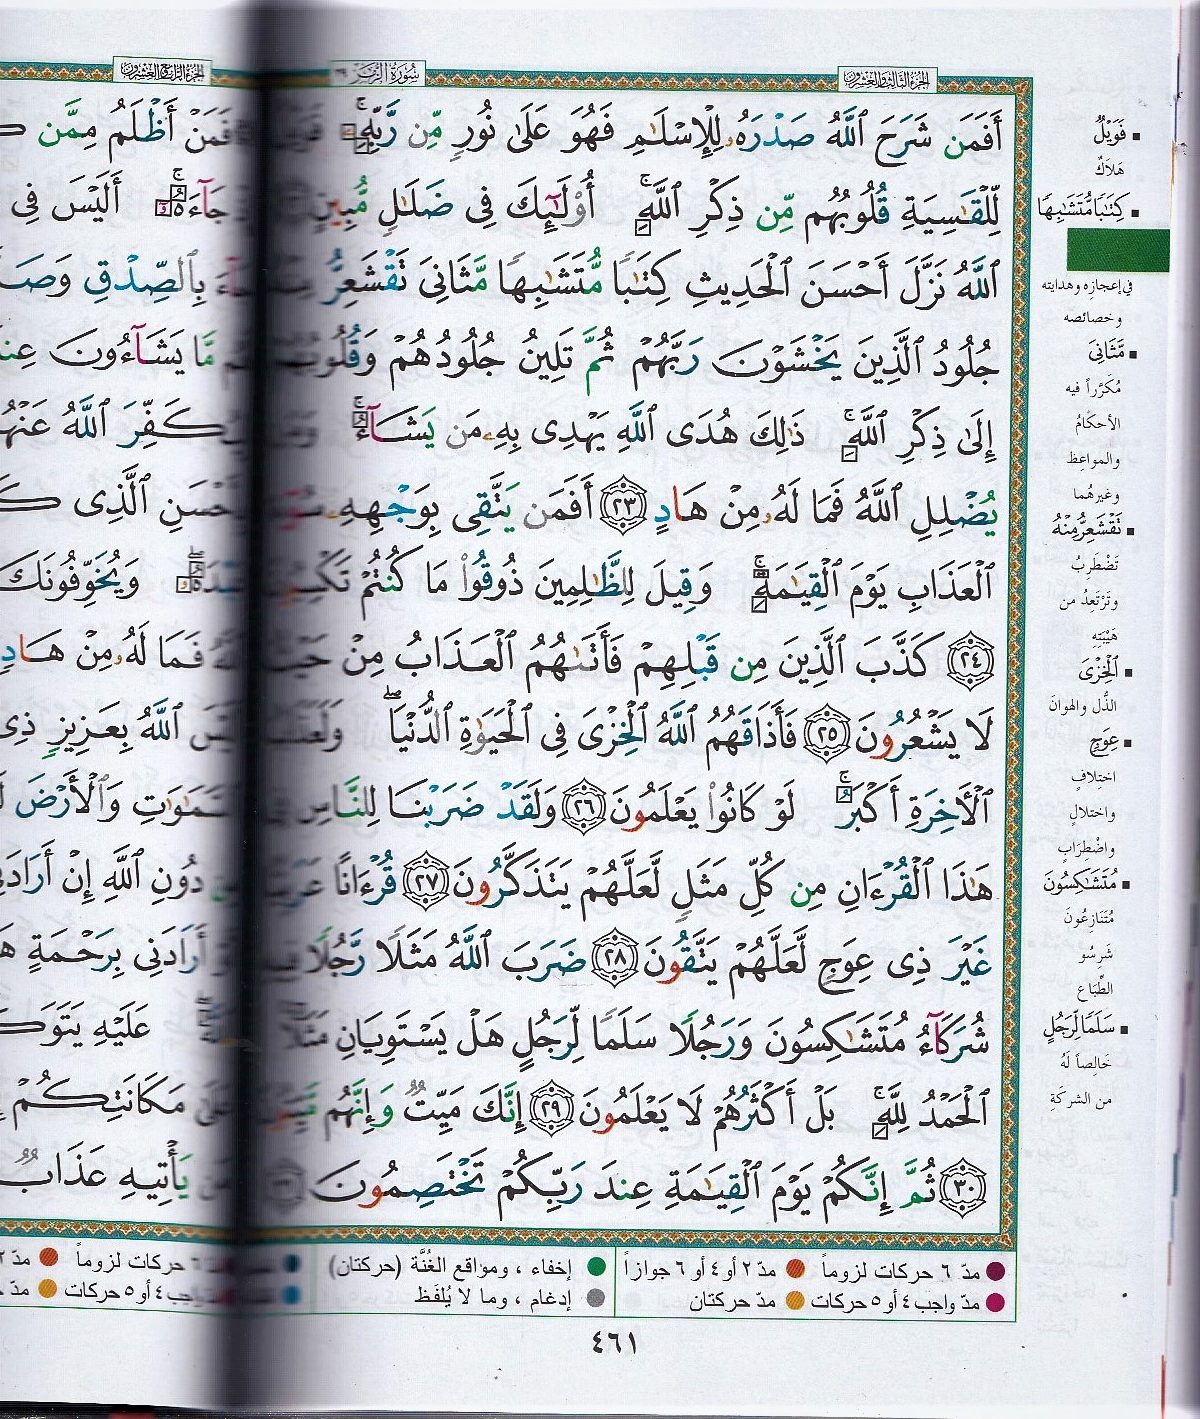 الجزء الثالث والعشرون
سُورَةُ الزُّمَر ٣٩
أَفَمَن شَرَحَ ٱللَّهُ صَدْرَهُۥ لِلْإِسْلَٰمِ فَهُوَ عَلَىٰ نُورٍ مِّن رَّبِّهِۦۚ
لِّلْقَٰسِيَةِ قُلُوبُهُم مِّن ذِكْرِ ٱللَّهِۚ أُوْلَٰٓئِكَ فِى ضَلَٰلٍ مُّبِينٍ
ٱللَّهُ نَزَّلَ أَحْسَنَ ٱلْحَدِيثِ كِتَٰبًا مُّتَشَٰبِهًا مَّثَانِىَ تَقْشَعِرُّ
جُلُودُ ٱلَّذِينَ يَخْشَوْنَ رَبَّهُمْ ثُمَّ تَلِينُ جُلُودُهُمْ وَقُلُوبُهُمْ
إِلَىٰ ذِكْرِ ٱللَّهِۚ ذَٰلِكَ هُدَى ٱللَّهِ يَهْدِى بِهِۦ مَن يَشَآءُۚ
يُضْلِلِ ٱللَّهُ فَمَا لَهُۥ مِنْ هَادٍ ٢٣ أَفَمَن يَتَّقِى بِوَجْهِهِۦ
ٱلْعَذَابِ يَوْمَ ٱلْقِيَٰمَةِۚ وَقِيلَ لِلظَّٰلِمِينَ ذُوقُواْ مَا كُنتُمْ
٢٤ كَذَّبَ ٱلَّذِينَ مِن قَبْلِهِمْ فَأَتَىٰهُمُ ٱلْعَذَابُ مِنْ حَيْثُ
لَا يَشْعُرُونَ ٢٥ فَأَذَاقَهُمُ ٱللَّهُ ٱلْخِزْىَ فِى ٱلْحَيَوٰةِ ٱلدُّنْيَاۖ
ٱلْأَخِرَةِ أَكْبَرُۚ لَوْ كَانُواْ يَعْلَمُونَ ٢٦ وَلَقَدْ ضَرَبْنَا لِلنَّاسِ
هَٰذَا ٱلْقُرْءَانِ مِن كُلِّ مَثَلٍ لَّعَلَّهُمْ يَتَذَكَّرُونَ ٢٧ قُرْءَانًا
غَيْرَ ذِى عِوَجٍ لَّعَلَّهُمْ يَتَّقُونَ ٢٨ ضَرَبَ ٱللَّهُ مَثَلًا رَّجُلًا
شُرَكَآءُ مُتَشَٰكِسُونَ وَرَجُلًا سَلَمًا لِّرَجُلٍ هَلْ يَسْتَوِيَانِ
ٱلْحَمْدُ لِلَّهِۚ بَلْ أَكْثَرُهُمْ لَا يَعْلَمُونَ ٢٩ إِنَّكَ مَيِّتٌ وَإِنَّهُم
٣٠ ثُمَّ إِنَّكُمْ يَوْمَ ٱلْقِيَٰمَةِ عِندَ رَبِّكُمْ تَخْتَصِمُونَ
فَوَيْلٌ
هَلاَكٌ
كِتَٰبًا مُّتَشَٰبِهًا
في إعجازِه وهدايته
وخصائصه
مَّثَانِىَ
مُكَرَّراً فيه
الأحكامُ
والمواعِظ
وغيرهُما
تَقْشَعِرُّ مِنْهُ
تَضْطَرِبُ
وتَرْتَعِدُ من
هَيْبَتِهِ
ٱلْخِزْىَ
الذُّل والهوانَ
عِوَجٍ
اختِلافٍ
واختلالٍ
واضْطِرَابٍ
مُتَشَٰكِسُونَ
مُتَنَازِعُونَ
شَرِسُو
الطِّبَاع
سَلَمًا لِّرَجُلٍ
خَالِصاً لَهُ
من الشركةِ
مدّ ٦ حركات لزوماً مدّ ٢ أو ٤ أو ٦ جوازاً إخفاء ، ومواقع الغُنَّة (حركتان)
مدّ واجب ٤ أو ٥ حركات مدّ حركتان إدغام ، وما لا يُلفَظ
٤٦١
الجزء الرابع والعشرون
فَمَنْ أَظْلَمُ مِمَّن
جَآءَهُۥٓۚ أَلَيْسَ فِى
بِٱلصِّدْقِ
مَّا يَشَآءُونَ
كَفِّرَ ٱللَّهُ
ٱلَّذِى
وَيُخَوِّفُونَكَ
فَمَا لَهُۥ مِنْ هَادٍ
ٱللَّهُ بِعَزِيزٍ ذِى
وَٱلْأَرْضَ
دُونِ ٱللَّهِ إِنْ
أَرَادَنِى بِرَحْمَةٍ
عَلَيْهِ
مَكَانَتِكُمْ
يَأْتِيهِ عَذَابٌ
٦ حركات لزوماً
واجب ٤ أو ٥ حركات